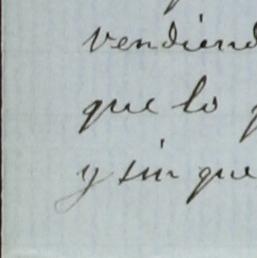 vendiend
que lo
y sin que